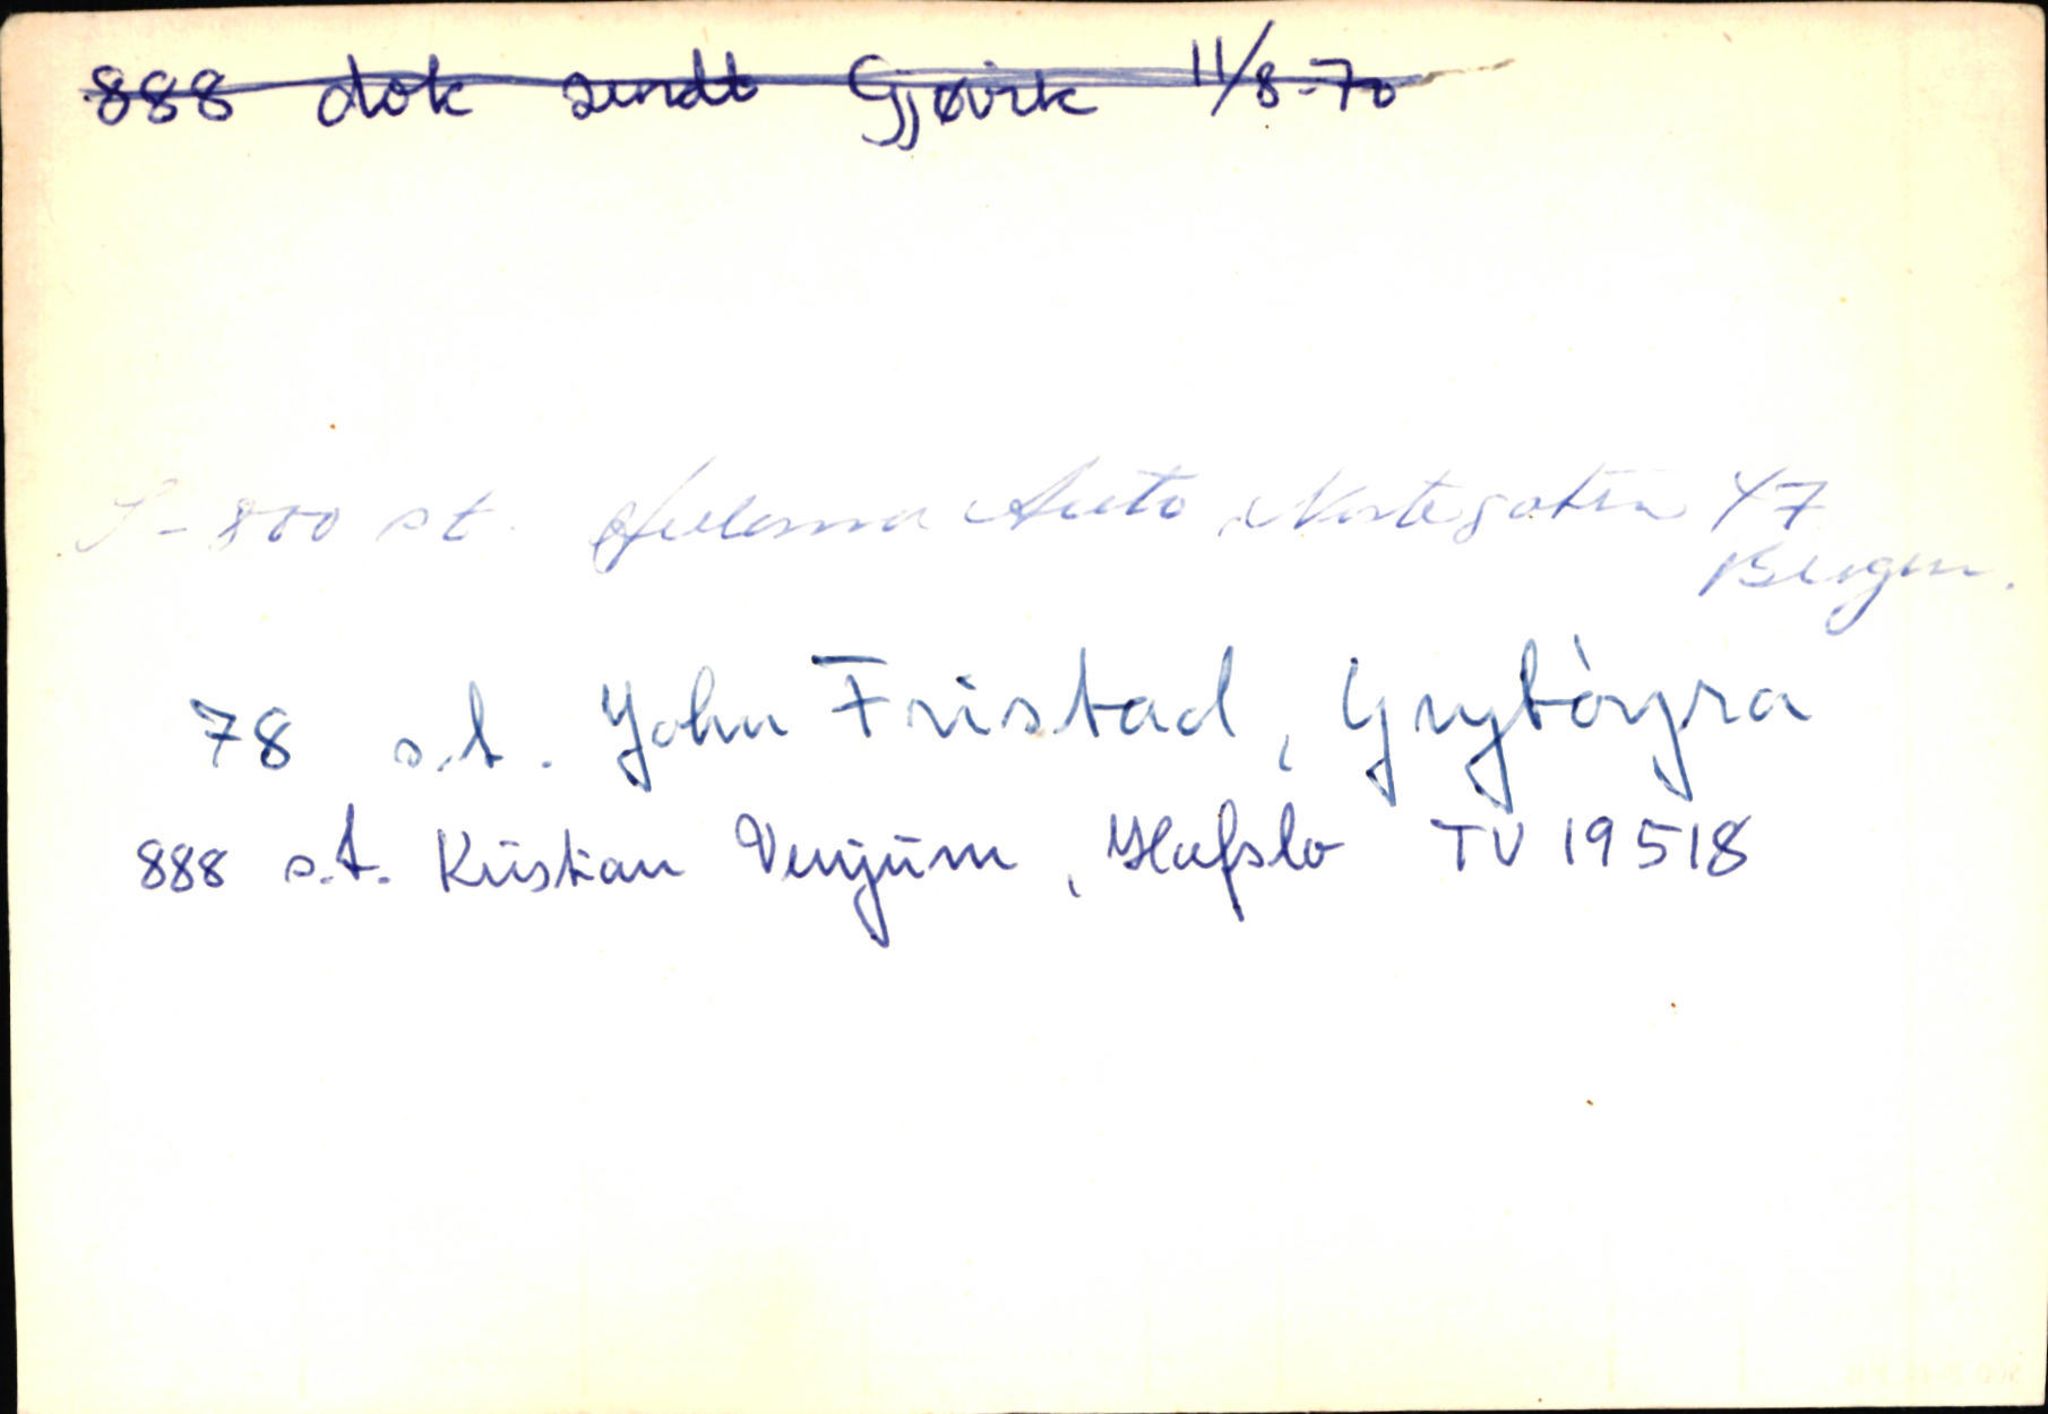 888 dok sendt Gjøvik 11/8-70
S-800 st. Auto Nostegaten 47
Bergen.
78 s.t. John Fristad, Grytöyra
888 s.t. Kristian Venjum, Hafslo TV 19518